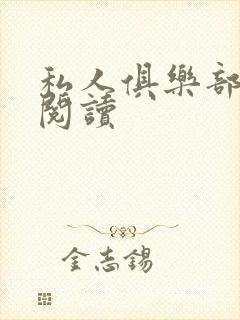 私人俱樂部
閱讀
金志錫